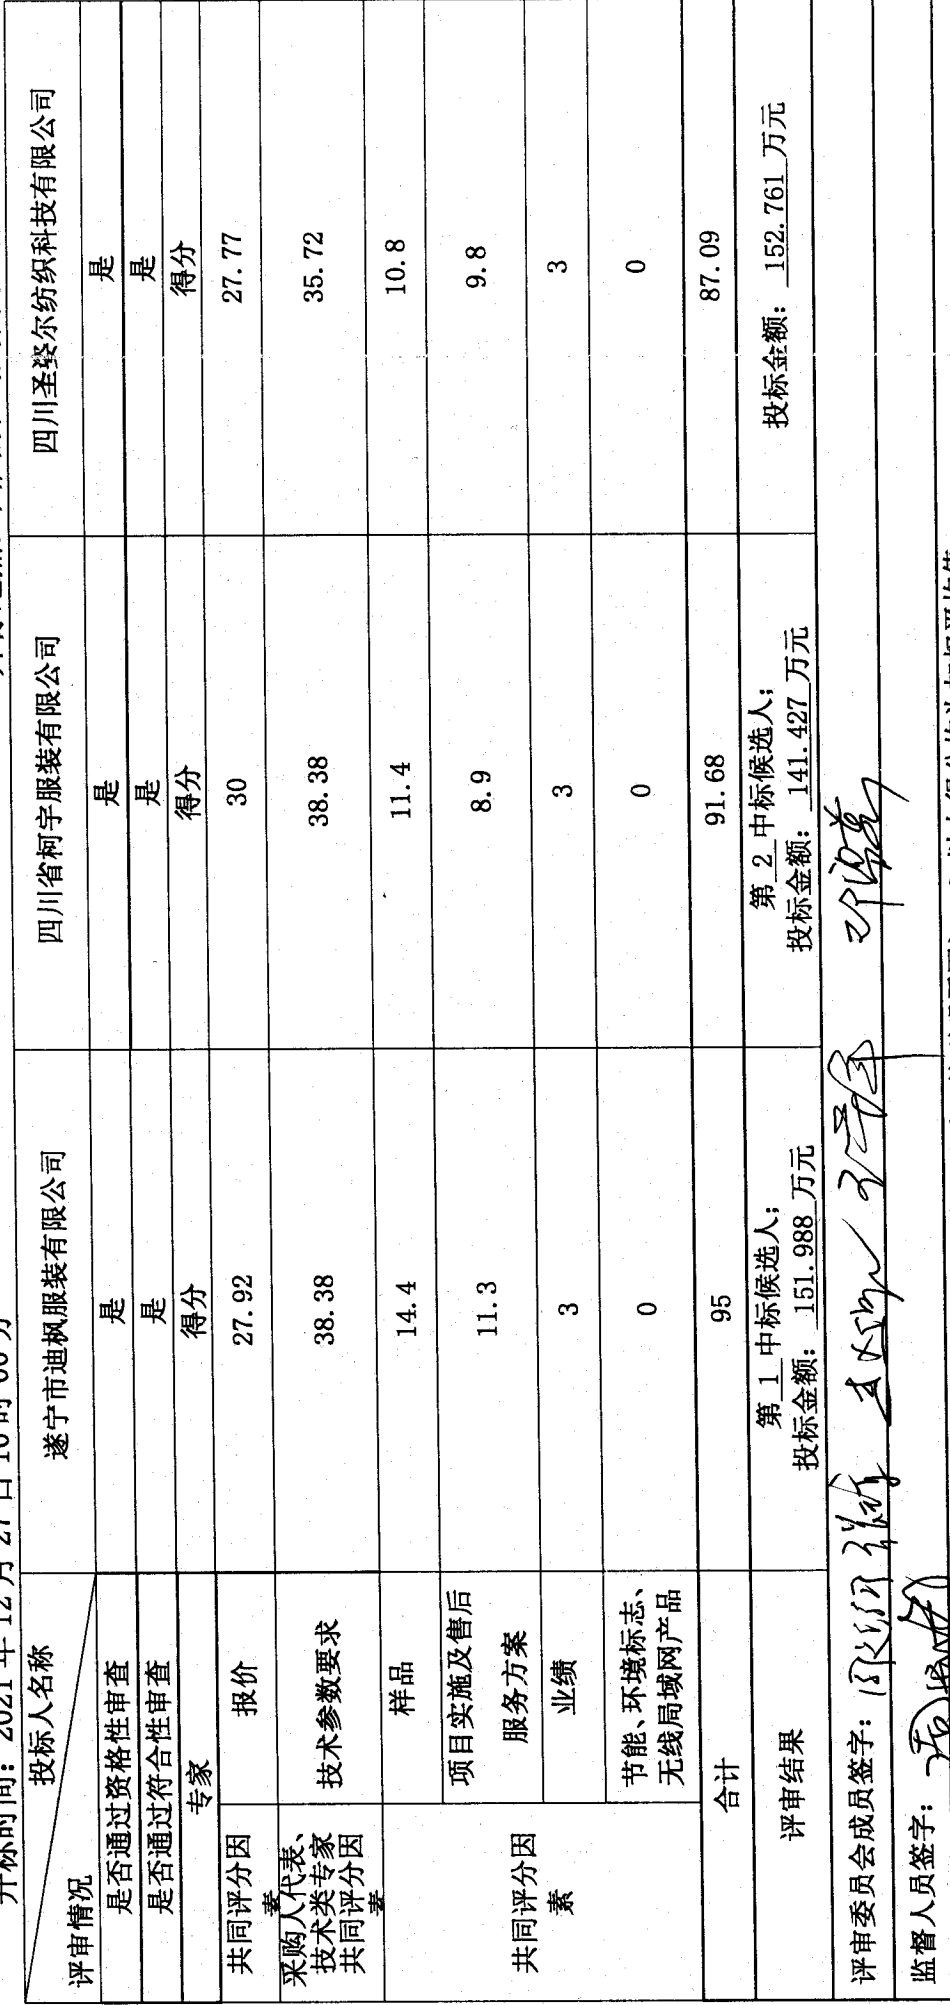 开标时间：2021 年 12 月 27 日 10 时 00 分
投标人名称
评审情况
遂宁市迪枫服装有限公司
四川省柯宇服装有限公司
四川圣姿尔纺织科技有限公司
是否通过资格性审查 是 是 是
是否通过符合性审查 是 是 是
专家 得分 得分 得分
共同评分因素 报价 27.92 30 27.77
采购人代表、技术类专家共同评分因素 技术参数要求 38.38 38.38 35.72
共同评分因素
样品 14.4 11.4 10.8
项目实施及售后服务方案 11.3 8.9 9.8
业绩 3 3 3
节能、环境标志、无线局域网产品 0 0 0
合计 95 91.68 87.09
评审结果
第 1 中标候选人；
投标金额： 151.988 万元
第 2 中标候选人；
投标金额： 141.427 万元
投标金额： 152.761 万元
评审委员会成员签字：
监督人员签字：